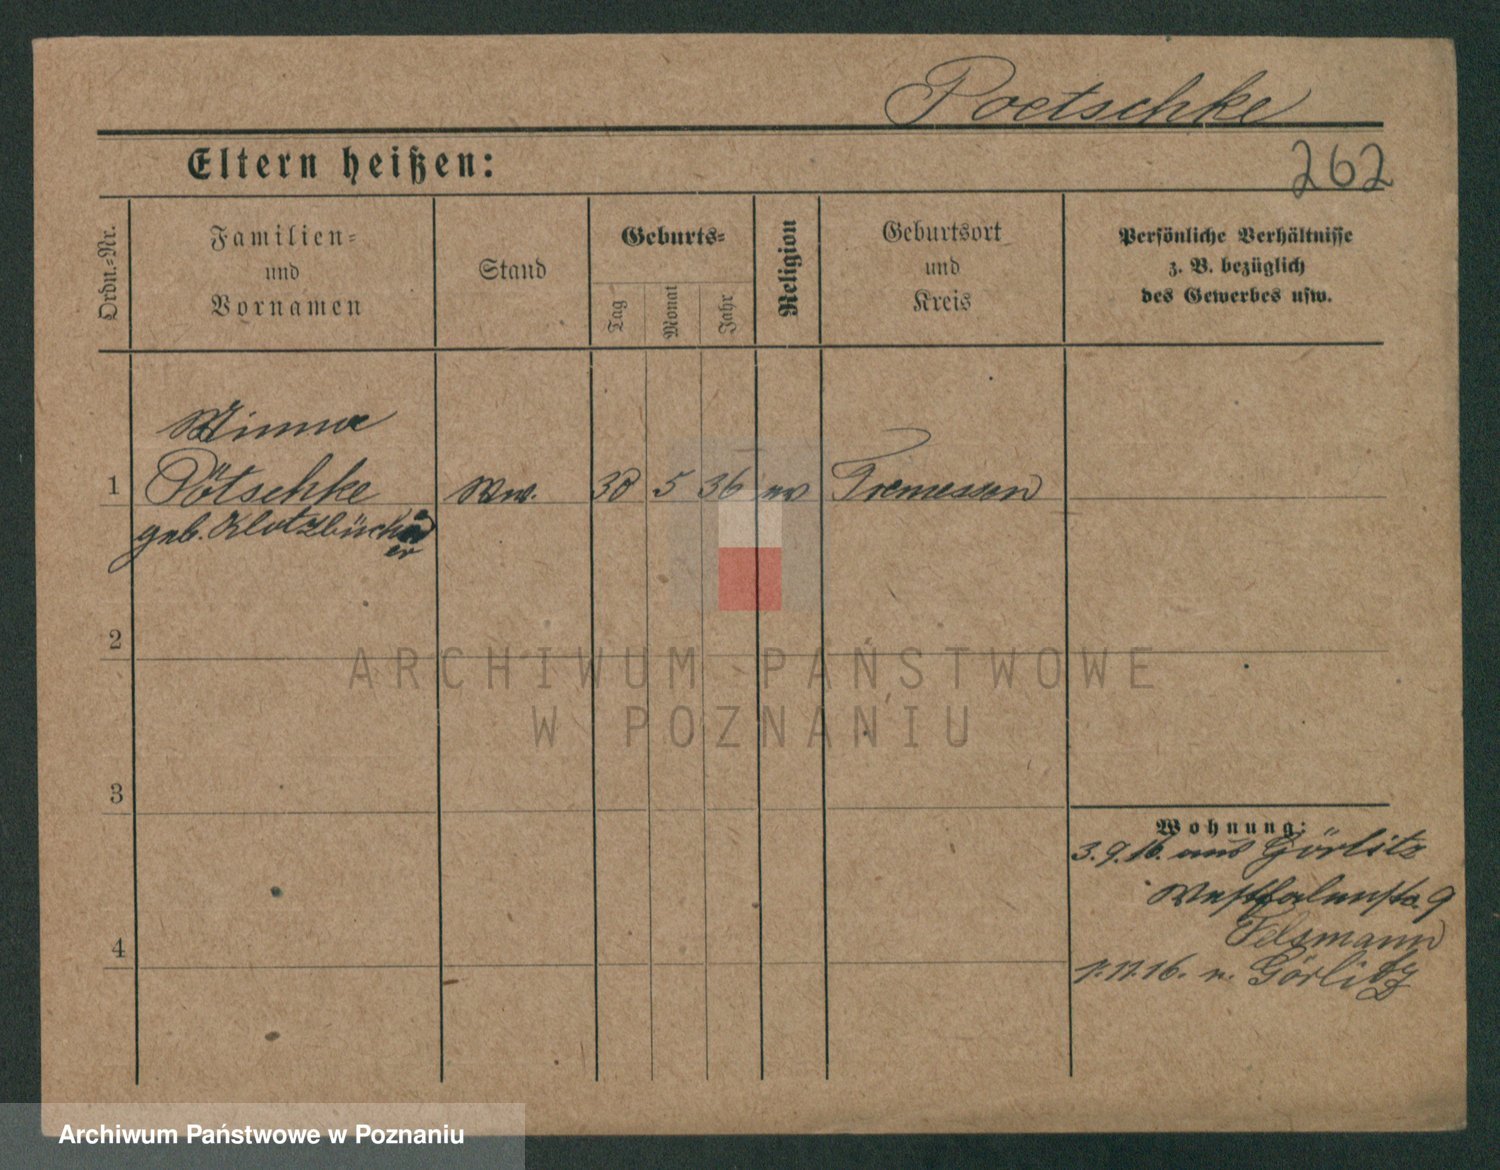 Poetschke
Eltern heißen:
262
Ordn.-Nr.
Familien-
und
Vornamen
Stand
Geburts-
Tag
Monat
Jahr
Religion
Geburtsort
und
Kreis
Persönliche Verhältnisse
z. B. bezüglich
des Gewerbes usw.
Minna
1 Pötschke Ww. 30 5 36 ev Tremessen
geb. Klotzbüch
er
2
3
4
Wohnung:
3.9.16. aus Görlitz
Westfalenstr. 9
Felsmann
1.11.16. n. Görlitz
ARCHIWUM PAŃSTWOWE
W POZNANIU
Archiwum Państwowe w Poznaniu